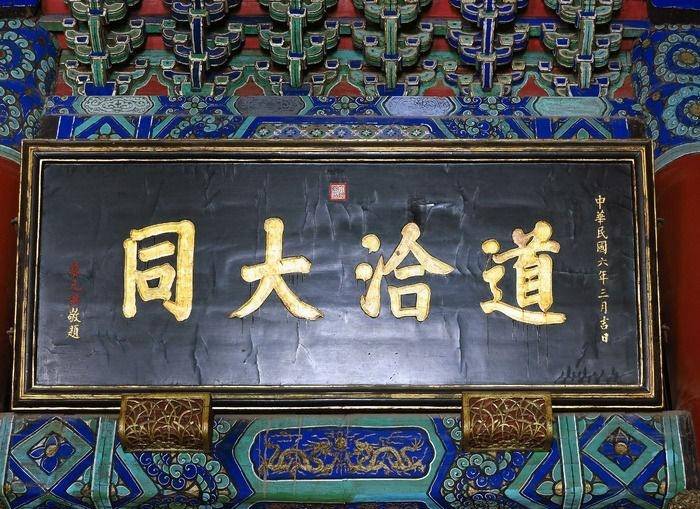 道洽大同
中華民國六年三月吉日
黎元洪敬題